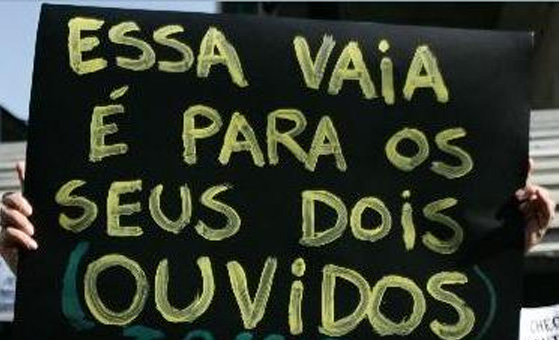 ESSA VAIA
É PARA OS
SEUS DOiS
(OUViDOS)